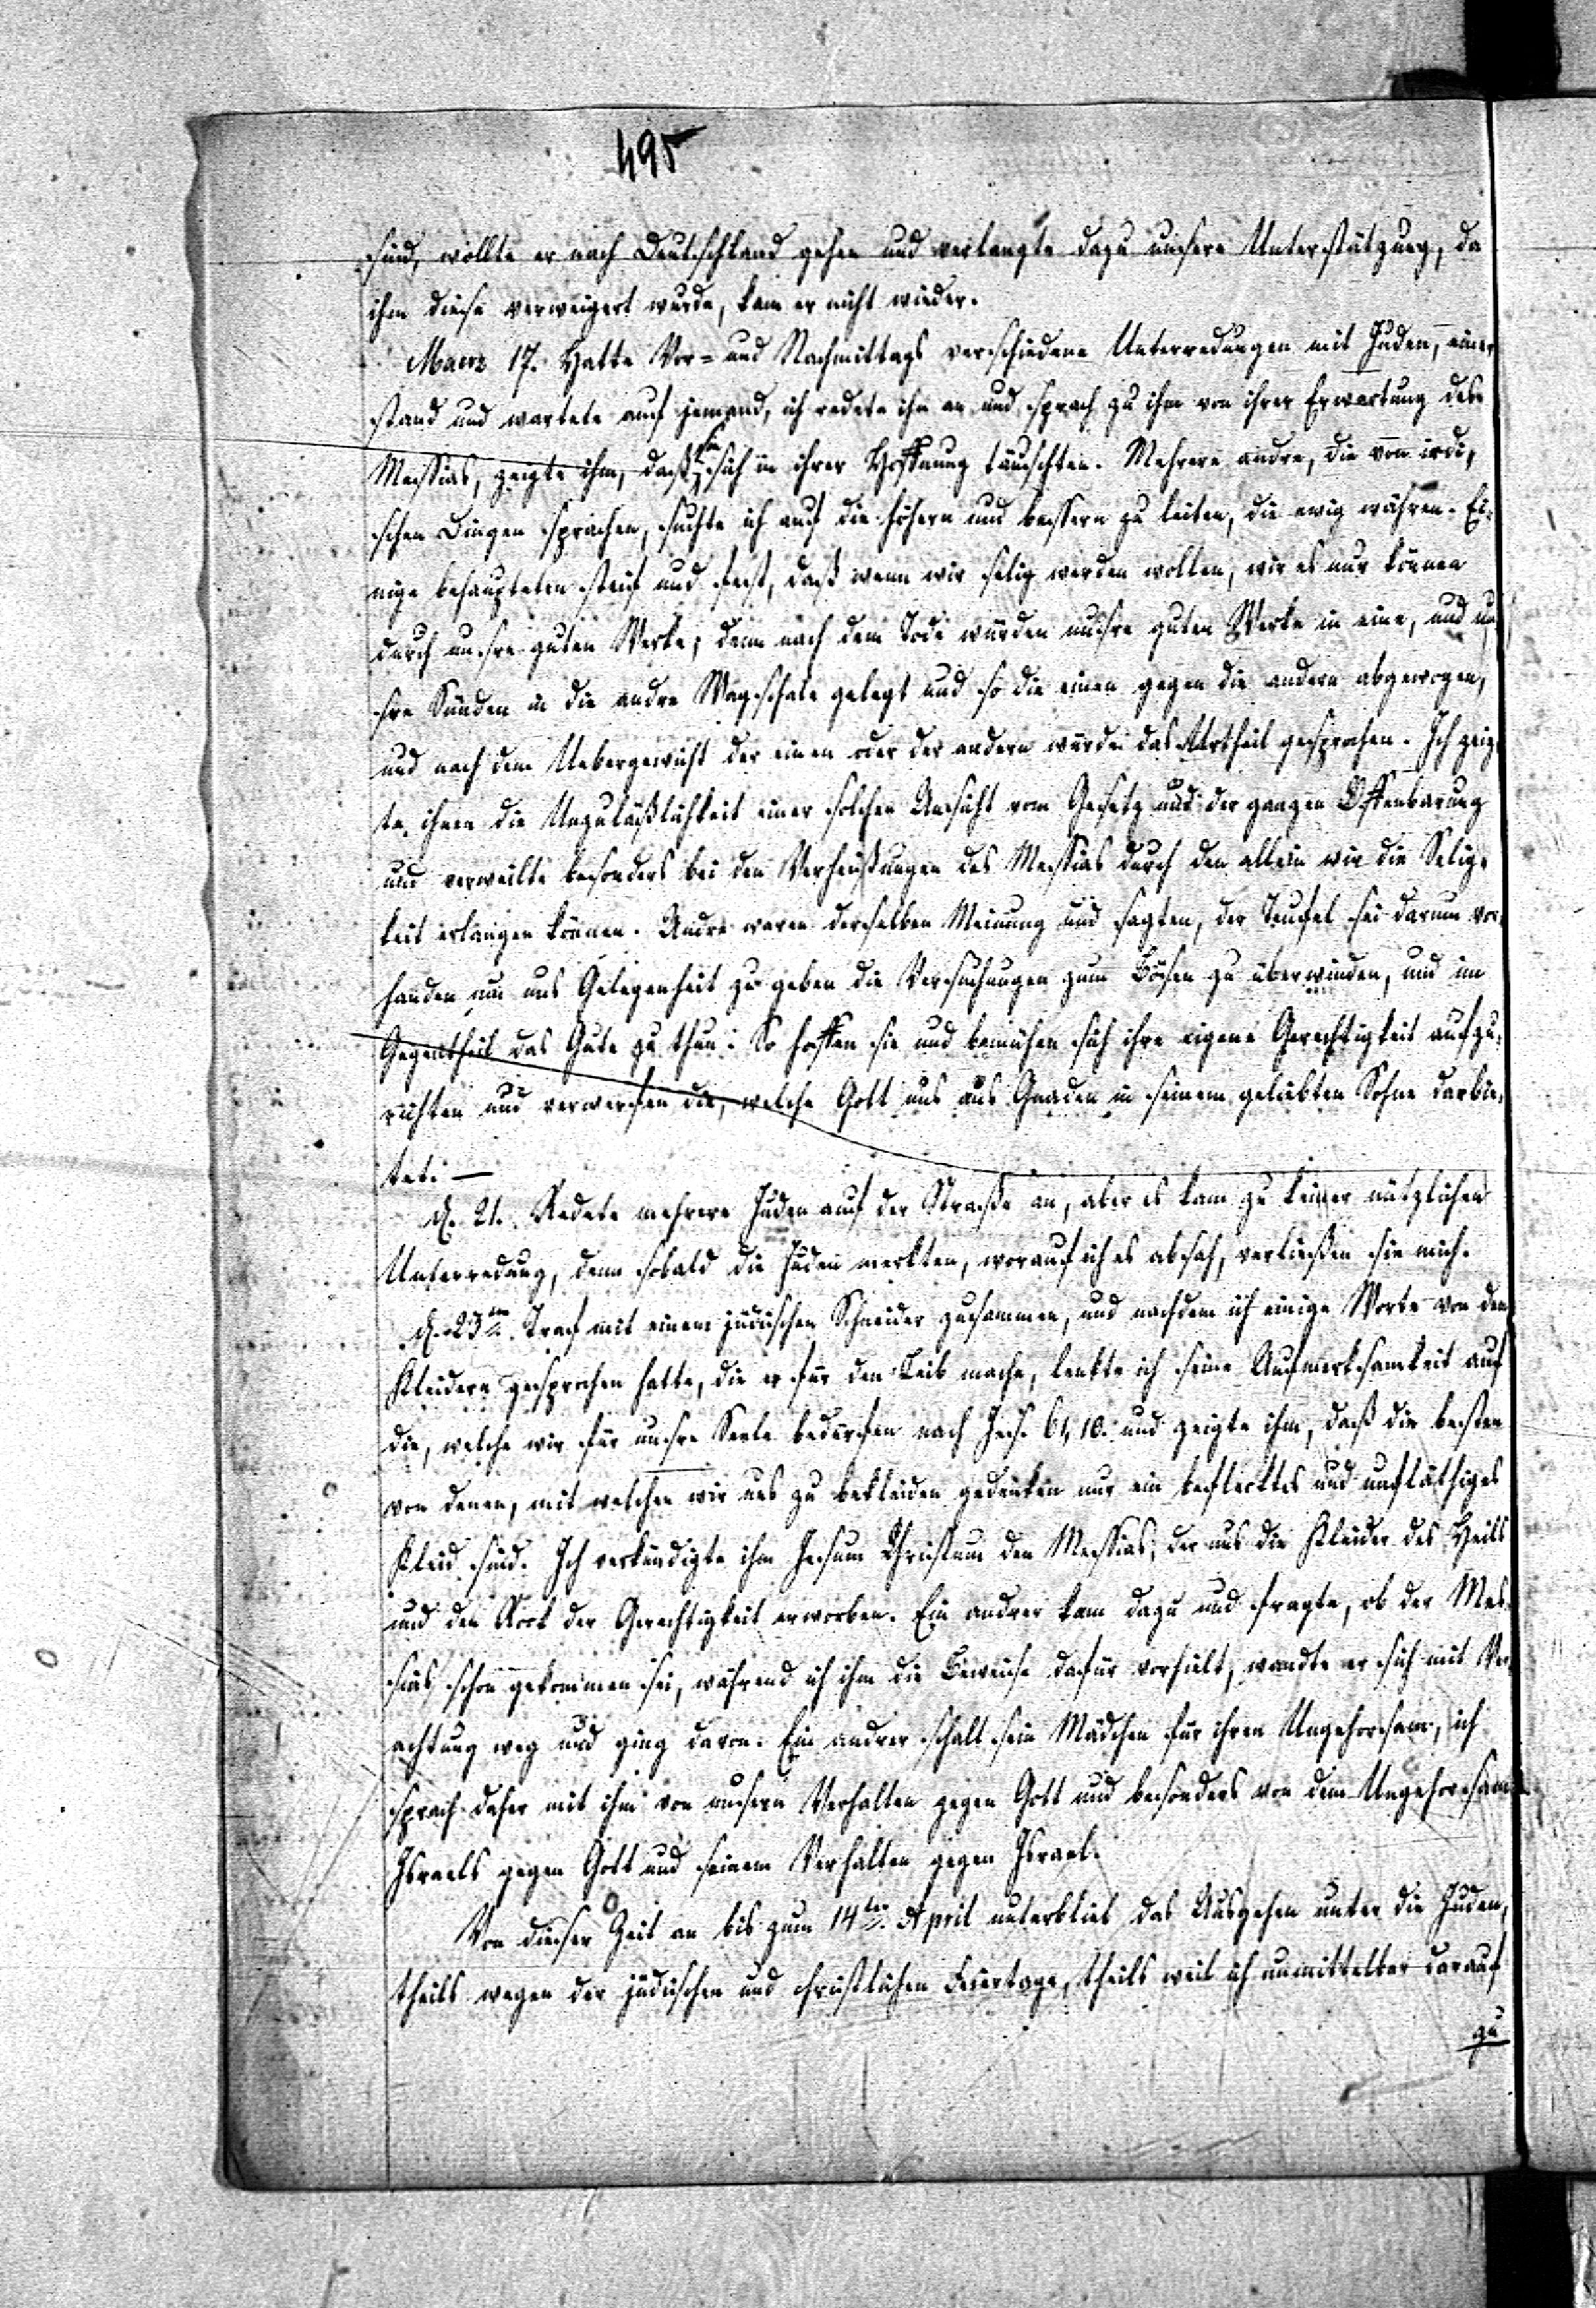 495
sind, wollte er nach Deutschland gehen und verlangte dazu unsere Unterstützung, da
ihm diese verweigert wurde, kam er nicht wieder.
Maerz 17. Hatte Vor- und Nachmittags verschiedene Unterredungen mit Juden, einer
stand und wartete auf jemand, ich redete ihn an und sprach zu ihm von ihrer Erwartung des
Messias, zeigte ihm, daß sie sich in ihrer Hoffnung täuschten. Mehrere andre, die von irdi-
schen Dingen sprachen, suchte ich auf die höhern und bessern zu leiten, die ewig währen. Ei-
nige behaupteten steif und fest, daß wenn wir selig werden wollen, wir es nur können
durch unsre guten Werke; denn nach dem Tode würden unsre guten Werke in eine, und un-
sre Sünden in die andre Wagschale gelegt und so die einen gegen die andern abgewogen,
und nach dem Uebergewicht der einen oder der andern würde das Urtheil gesprochen. Ich zeig-
te ihnen die Unzuläßlichkeit einer solchen Ansicht vom Gesetz und der ganzen Offenbarung
und verweilte besonders bei den Verheißungen des Messias durch den allein wir die Selig-
keit erlangen können. Andre waren derselben Meinung und sagten, der Teufel sei darum vor-
handen um uns Gelegenheit zu geben die Versuchungen zum Bösen zu überwinden, und im
Gegentheil das Gute zu thun. So hoffen sie und bemühen sich ihre eigene Gerechtigkeit aufzu-
richten und verwerfen die, welche Gott uns aus Gnaden in seinem geliebten Sohne darbie-
tet. —
d. 21. Redete mehrere Juden auf der Straße an, aber es kam zu keiner nützlichen
Unterredung, denn sobald die Juden merkten, worauf ich es absah, verließen sie mich.
d. 23ten Traf mit einem jüdischen Schneider zusammen, und nachdem ich einige Worte von den
Kleidern gesprochen hatte, die er für den Leib mache, lenkte ich seine Aufmerksamkeit auf
die, welche wir für unsre Seele bedürfen nach Jes. 61, 10. und zeigte ihm, daß die besten
von denen, mit welchen wir uns zu bekleiden gedenken nur ein beflecktes und unfläthiges
Kleid sind. Ich verkündigte ihm Jesum Christum den Messias, der uns die Kleider des Heils
und den Rock der Gerechtigkeit erworben. Ein andrer kam dazu und fragte, ob der Mes-
sias schon gekommen sei, während ich ihm die Beweise dafür vorhielt, wandte er sich mit Ver-
achtung weg und ging davon. Ein andrer schalt sein Mädchen für ihren Ungehorsam, ich
sprach daher mit ihm von unserm Verhalten gegen Gott und besonders von dem Ungehorsam
Israels gegen Gott und seinem Verhalten gegen Israel.
Von dieser Zeit an bis zum 14ten April unterblieb das Ausgehen unter die Juden,
theils wegen der jüdischen und christlichen Feiertage, theils weil ich unmittelbar darauf
zu